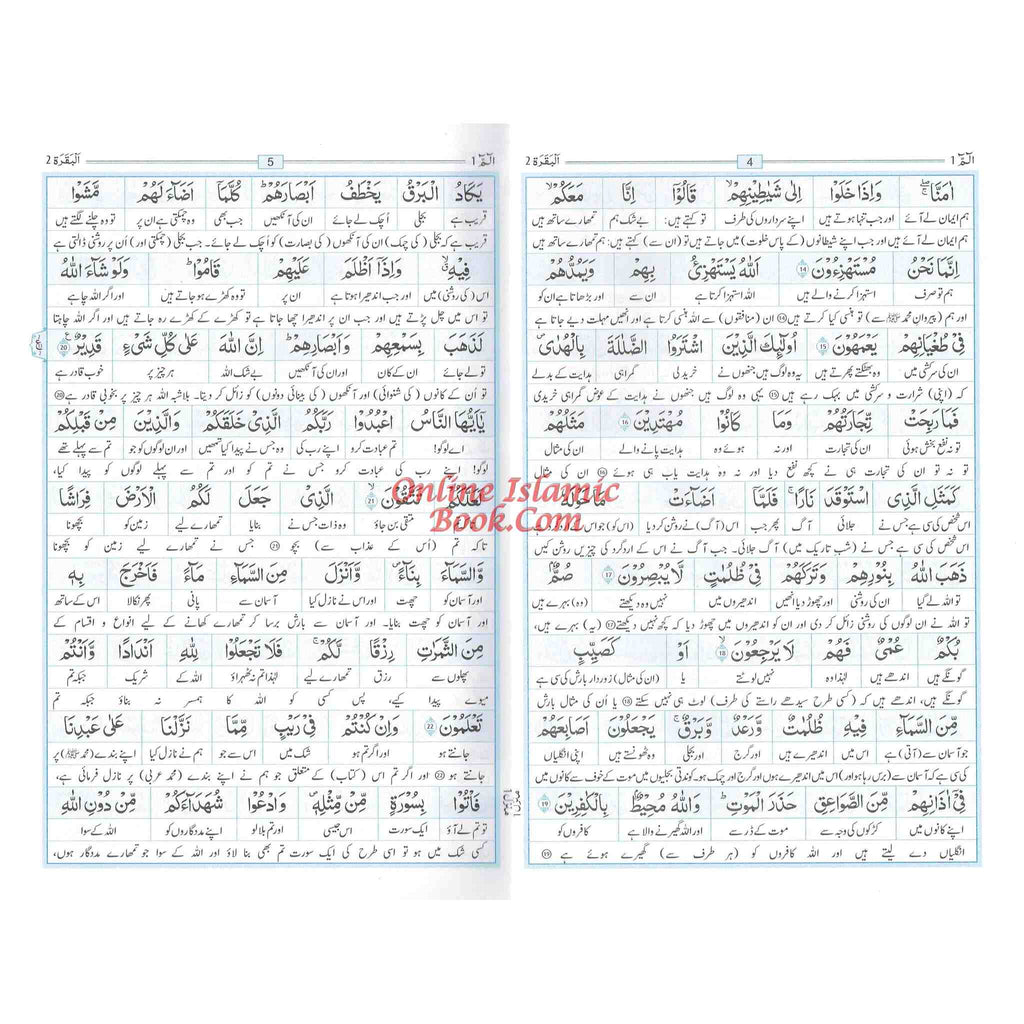 الٓمّٓ 1
4
اَلْبَقَرَة 2
اٰمَنَّا ۖۚ وَاِذَا خَلَوْا اِلٰى شَيٰطِيْنِهِمْ ۙ قَالُوْٓا اِنَّا مَعَكُمْ ۙ
ہم ایمان لے آئے اور جب تنہا ہوتے ہیں اپنے سرداروں کی طرف تو کہتے ہیں: بے شک ہم تمھارے ساتھ ہیں
ہم ایمان لے آئے ہیں اور جب اپنے شیطانوں (کے پاس خلوت) میں جاتے ہیں تو (ان سے) کہتے ہیں: ہم تمھارے ساتھ ہیں
اِنَّمَا نَحْنُ مُسْتَهْزِءُوْنَ 14 اَللّٰهُ يَسْتَهْزِئُ بِهِمْ وَيَمُدُّهُمْ
ہم تو صرف استہزا کرنے والے ہیں اللہ استہزا کرتا ہے ان سے اور بڑھاتا ہے ان کو
اور ہم (پیروانِ محمد ﷺ سے) تو ہنسی کیا کرتے ہیں 14 ان (منافقوں) سے اللہ ہنسی کرتا ہے اور انھیں مہلت دیے جاتا ہے
فِيْ طُغْيَانِهِمْ يَعْمَهُوْنَ 15 اُولٰٓئِكَ الَّذِيْنَ اشْتَرَوُا الضَّلٰلَةَ بِالْهُدٰى ۪
ان کی سرکشی میں وہ بھٹکتے پھرتے ہیں یہ وہ لوگ ہیں جنھوں نے خرید لی گمراہی ہدایت کے بدلے
کہ (اپنی) شرارت و سرکشی میں بہک رہے ہیں 15 یہی وہ لوگ ہیں جنھوں نے ہدایت کے عوض گمراہی خریدی
فَمَا رَبِحَتْ تِّجَارَتُهُمْ وَمَا كَانُوْا مُهْتَدِيْنَ 16 مَثَلُهُمْ
تو نہ نفع بخش ہوئی ان کی تجارت اور نہ وہ ہوئے ہدایت پانے والے ان کی مثال
تو نہ تو ان کی تجارت ہی نے کچھ نفع دیا اور نہ وہ ہدایت یاب ہی ہوئے 16 ان کی مثال
كَمَثَلِ الَّذِي اسْتَوْقَدَ نَارًا ۚ فَلَمَّآ اَضَآءَتْ مَاحَوْلَهٗ
اس شخص کی سی ہے جس نے جلائی آگ پھر جب اس (آگ) نے روشن کر دیا (اس کو) جو اس کے ارد گرد ہے
اس شخص کی سی ہے جس نے (شب تاریک میں) آگ جلائی۔ جب آگ نے اس کے اردگرد کی چیزیں روشن کیں
ذَهَبَ اللّٰهُ بِنُوْرِهِمْ وَتَرَكَهُمْ فِيْ ظُلُمٰتٍ لَّا يُبْصِرُوْنَ 17 صُمٌّۢ
تو اللہ لے گیا ان کی روشنی اور چھوڑ دیا انھیں اندھیروں میں نہیں وہ دیکھتے (وہ) بہرے ہیں
تو اللہ نے ان لوگوں کی روشنی زائل کر دی اور ان کو اندھیروں میں چھوڑ دیا کہ کچھ نہیں دیکھتے 17 (یہ) بہرے ہیں،
بُكْمٌ عُمْيٌ فَهُمْ لَا يَرْجِعُوْنَ 18 اَوْ كَصَيِّبٍ
گونگے ہیں اندھے ہیں لہٰذا وہ نہیں لوٹتے یا (ان کی مثال) زوردار بارش کی سی ہے
گونگے ہیں، اندھے ہیں کہ (کسی طرح سیدھے راستے کی طرف) لوٹ ہی نہیں سکتے 18 یا ان کی مثال بارش
مِّنَ السَّمَآءِ فِيْهِ ظُلُمٰتٌ وَّرَعْدٌ وَّبَرْقٌ ۚ يَجْعَلُوْنَ اَصَابِعَهُمْ
جو آسمان سے (آتی) ہے اس میں اندھیرے ہیں اور گرج اور بجلی وہ ٹھونستے ہیں اپنی انگلیاں
کی سی ہے کہ آسمان سے (برس رہا ہو اور) اس میں اندھیرے ہوں اور گرج اور چمک ہو۔ کوندتی بجلیوں میں موت کے خوف سے کانوں میں
فِيْٓ اٰذَانِهِمْ مِّنَ الصَّوَاعِقِ حَذَرَ الْمَوْتِ ؕ وَاللّٰهُ مُحِيْطٌۢ بِالْكٰفِرِيْنَ 19
اپنے کانوں میں کڑکوں کی وجہ سے موت کے ڈر سے اور اللہ گھیرنے والا ہے کافروں کو
انگلیاں دے لیتے ہیں اور اللہ کافروں کو (ہر طرف سے) گھیرے ہوئے ہے 19
الٓمّٓ 1
5
اَلْبَقَرَة 2
يَكَادُ الْبَرْقُ يَخْطَفُ اَبْصَارَهُمْ ؕ كُلَّمَآ اَضَآءَ لَهُمْ مَّشَوْا
قریب ہے بجلی اُچک لے جائے ان کی آنکھیں جب بھی وہ چمکتی ہے ان پر تو وہ چلنے لگتے ہیں
قریب ہے کہ بجلی (کی چمک) ان کی آنکھوں (کی بصارت) کو اُچک لے جائے۔ جب بجلی (چمکتی اور) اُن پر روشنی ڈالتی ہے
فِيْهِ ۙ وَاِذَآ اَظْلَمَ عَلَيْهِمْ قَامُوْا ؕ وَلَوْ شَآءَ اللّٰهُ
اس (کی روشنی) میں اور جب اندھیرا ہوتا ہے ان پر تو وہ کھڑے ہو جاتے ہیں اور اگر اللہ چاہے
تو اس میں چل پڑتے ہیں اور جب ان پر اندھیرا چھا جاتا ہے تو کھڑے کے کھڑے رہ جاتے ہیں اور اگر اللہ چاہتا
لَذَهَبَ بِسَمْعِهِمْ وَاَبْصَارِهِمْ ؕ اِنَّ اللّٰهَ عَلٰى كُلِّ شَيْءٍ قَدِيْرٌ 20
تو لے جائے ان کے کان اور ان کی آنکھیں بے شک اللہ ہر چیز پر خوب قادر ہے
تو اُن کے کانوں (کی شنوائی) اور آنکھوں (کی بینائی دونوں) کو زائل کر دیتا۔ بلاشبہ اللہ ہر چیز پر بخوبی قادر ہے 20
يٰٓاَيُّهَا النَّاسُ اعْبُدُوْا رَبَّكُمُ الَّذِيْ خَلَقَكُمْ وَالَّذِيْنَ مِنْ قَبْلِكُمْ
اے لوگو! تم عبادت کرو اپنے رب کی وہ جس نے پیدا کیا تمھیں اور ان لوگوں کو جو تم سے پہلے تھے
لوگو! اپنے رب کی عبادت کرو جس نے تم کو اور تم سے پہلے لوگوں کو پیدا کیا،
لَعَلَّكُمْ تَتَّقُوْنَ 21 الَّذِيْ جَعَلَ لَكُمُ الْاَرْضَ فِرَاشًا
تاکہ تم متقی بن جاؤ وہ ذات جس نے بنایا تمھارے لیے زمین کو بچھونا
تاکہ تم (اُس کے عذاب سے) بچو 21 جس نے تمھارے لیے زمین کو بچھونا
وَّالسَّمَآءَ بِنَآءً ۪ وَّاَنْزَلَ مِنَ السَّمَآءِ مَآءً فَاَخْرَجَ بِهٖ
اور آسمان کو چھت اور اس نے نازل کیا آسمان سے پانی پھر نکالا اس کے ساتھ
اور آسمان کو چھت بنایا۔ اور آسمان سے بارش برسا کر تمھارے کھانے کے لیے انواع و اقسام کے
مِنَ الثَّمَرٰتِ رِزْقًا لَّكُمْ ۚ فَلَا تَجْعَلُوْا لِلّٰهِ اَنْدَادًا وَّاَنْتُمْ
پھلوں سے رزق تمھارے لیے لہٰذا تم نہ ٹھہراؤ اللہ کے شریک جبکہ تم
میوے پیدا کیے، پس کسی کو اللہ کا ہمسر نہ بناؤ جبکہ تم
تَعْلَمُوْنَ 22 وَاِنْ كُنْتُمْ فِيْ رَيْبٍ مِّمَّا نَزَّلْنَا عَلٰى عَبْدِنَا
جانتے ہو اور اگر تم ہو شک میں اس سے جو ہم نے نازل کیا اپنے بندے (محمد ﷺ) پر
جانتے ہو 22 اور اگر تم اس (کتاب) کے متعلق جو ہم نے اپنے بندے (محمد عربی) پر نازل فرمائی ہے،
فَاْتُوْا بِسُوْرَةٍ مِّنْ مِّثْلِهٖ ۪ وَادْعُوْا شُهَدَآءَكُمْ مِّنْ دُوْنِ اللّٰهِ
تو تم لے آؤ ایک سورت اس جیسی اور تم بلا لو اپنے مددگاروں کو اللہ کے سوا
کسی شک میں ہو تو اسی طرح کی ایک سورت تم بھی بنا لاؤ اور اللہ کے سوا جو تمھارے مددگار ہوں،
Online Islamic
Book.Com